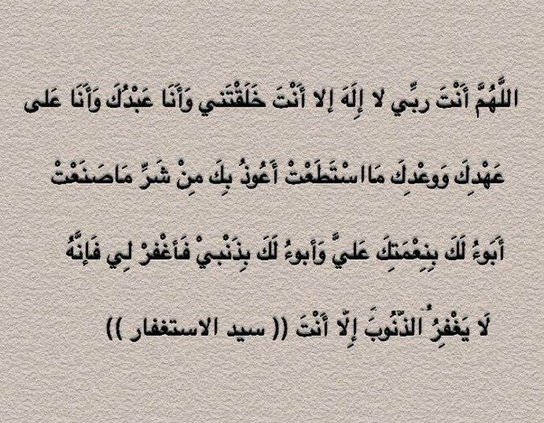 اللَّهُمَّ أَنْتَ ربِّي لا إِلَهَ إلا أَنْتَ خَلَقْتَني وَأَنَا عَبْدُكَ وَأَنَا عَلى
عَهْدِكَ وَوعْدِكَ مَااسْتَطَعْتْ أَعُوذُ بِكَ مِنْ شَرِّ مَاصَنَعَتْ
أَبَوءُ لَكَ بِنِعْمَتِكَ عَليَّ وَأبوءُ لَكَ بِذَنْبيْ فَأغْفرْ لِي فَإنَّهُ
لَا يَغْفِرُ الذُّنُوبَ إِلّا أَنْتَ (( سيد الاستغفار ))